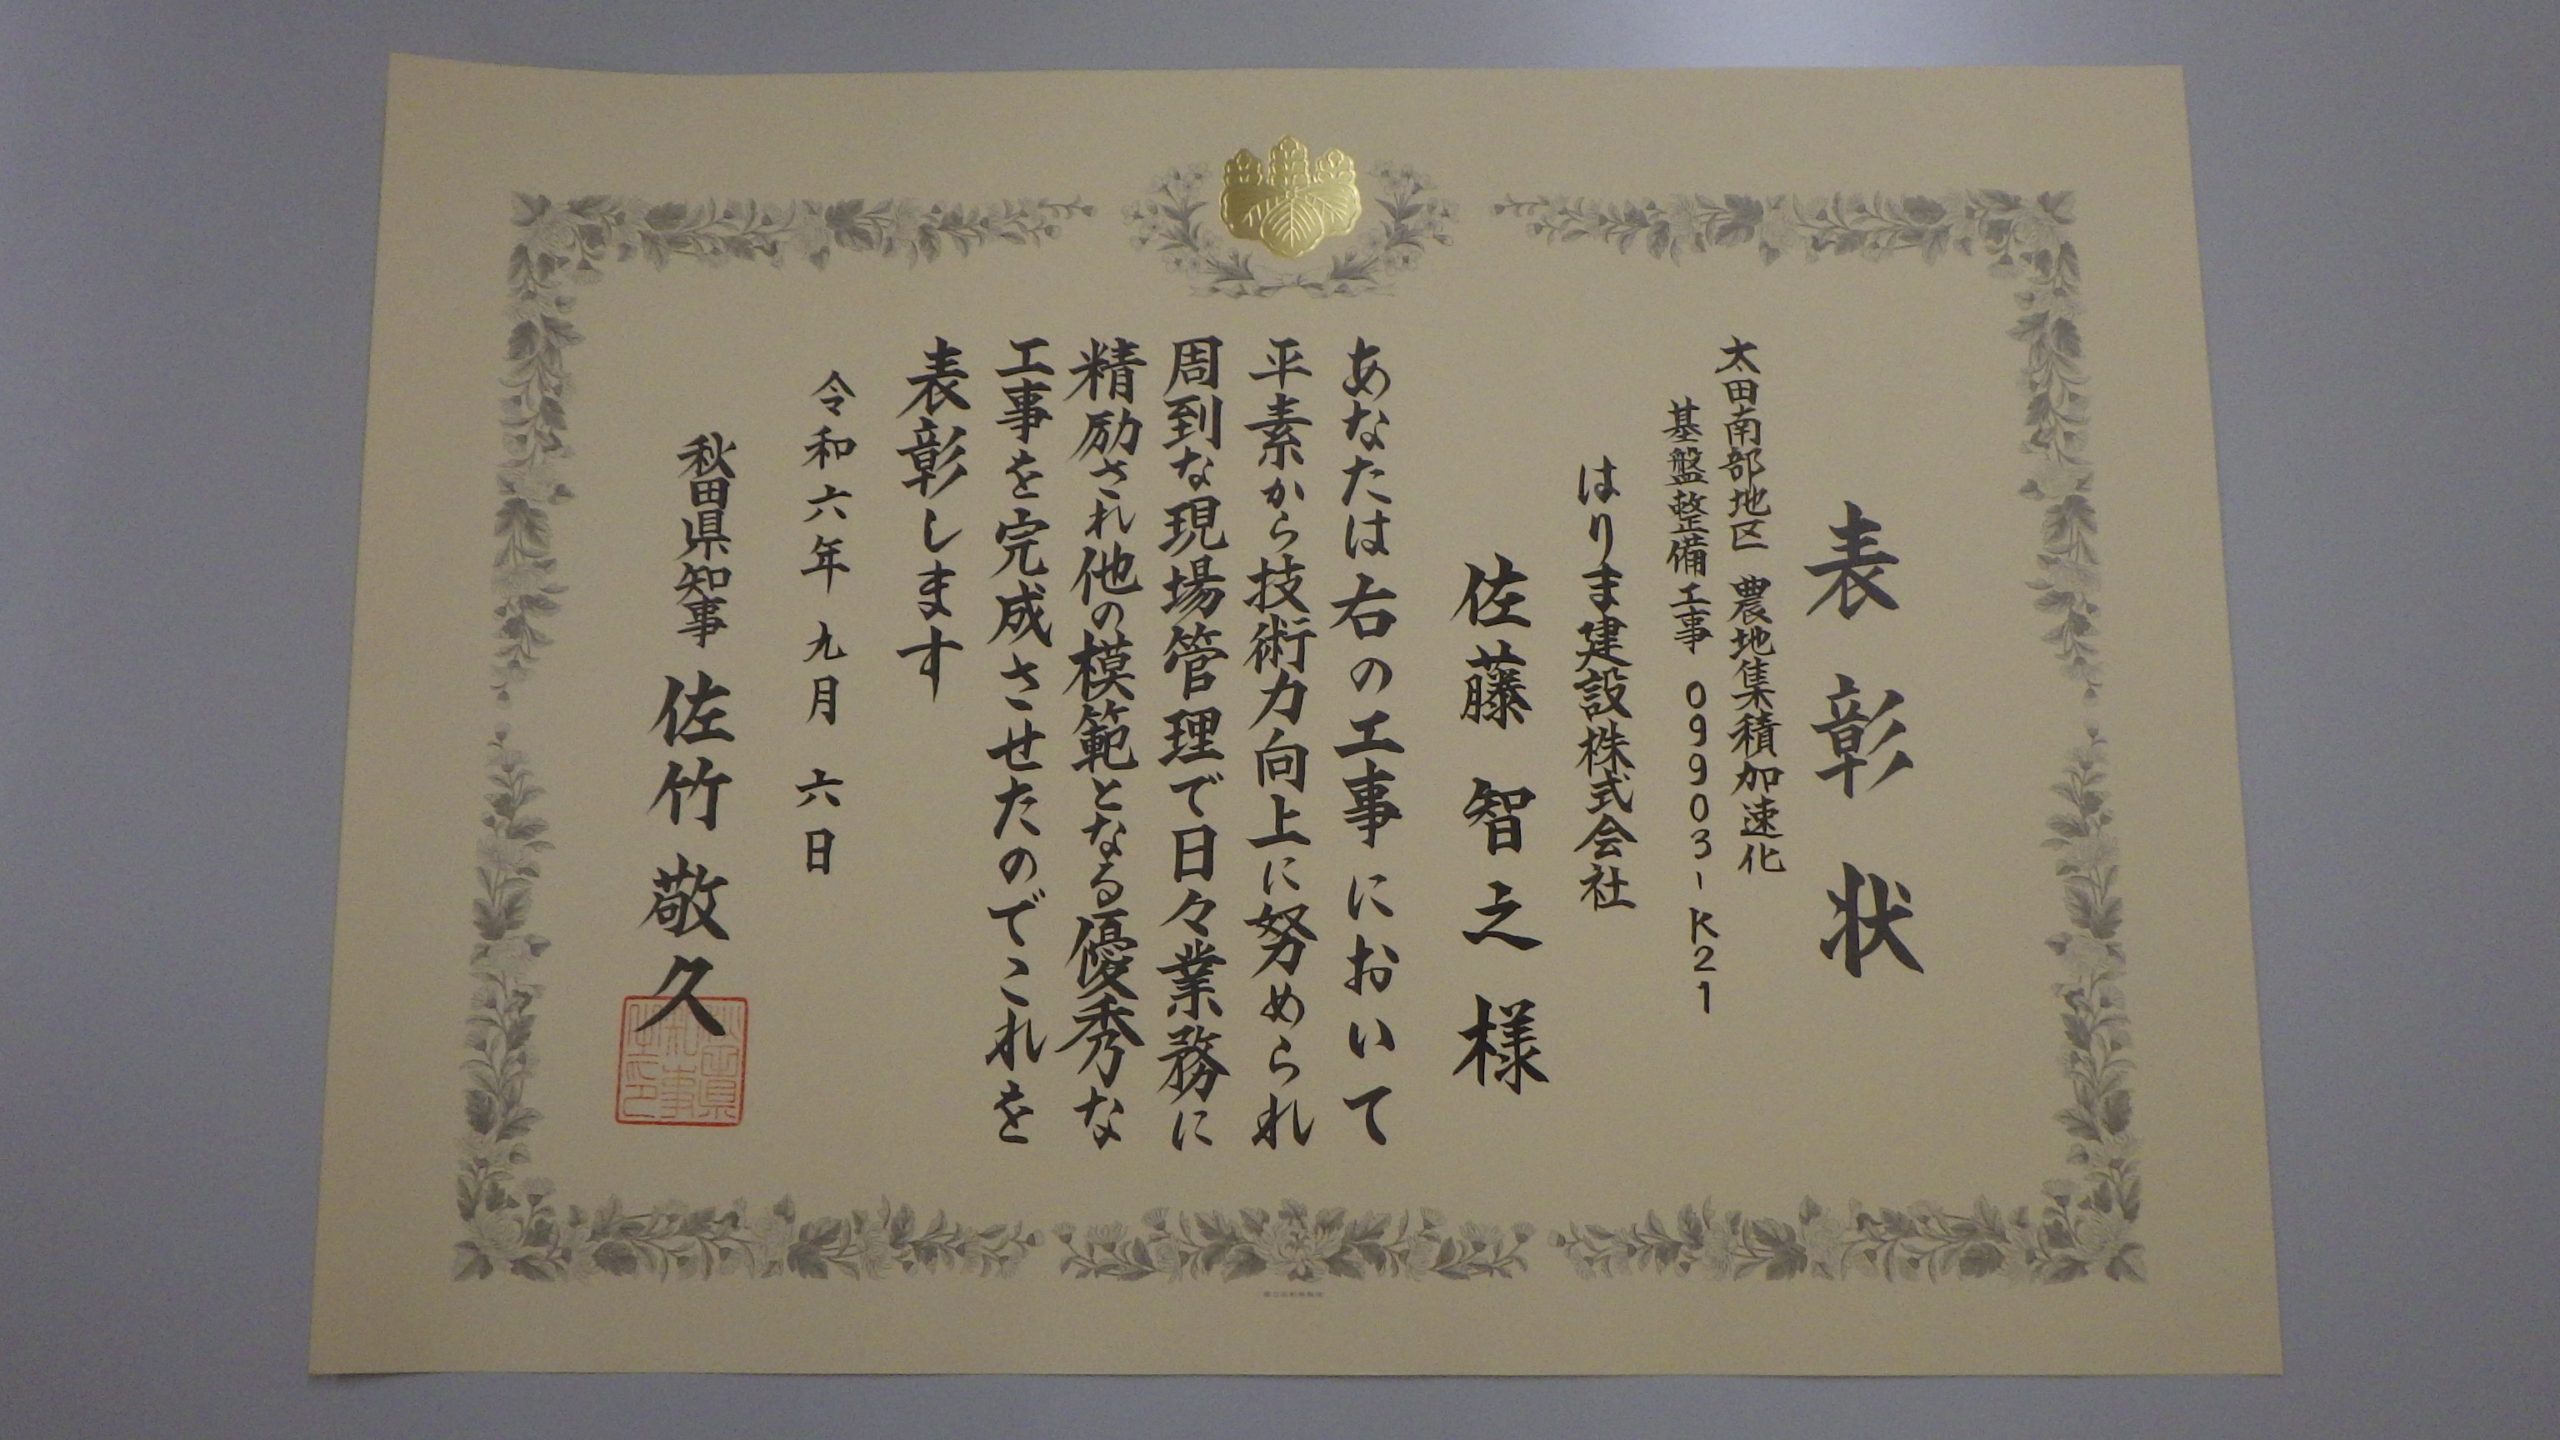 表彰状
太田南部地区 農地集積加速化
基盤整備工事 09903-K21
はりま建設株式会社
佐藤智之様
あなたは右の工事において
平素から技術力向上に努められ
周到な現場管理で日々業務に
精励され他の模範となる優秀な
工事を完成させたのでこれを
表彰します
令和六年九月六日
秋田県知事 佐竹敬久